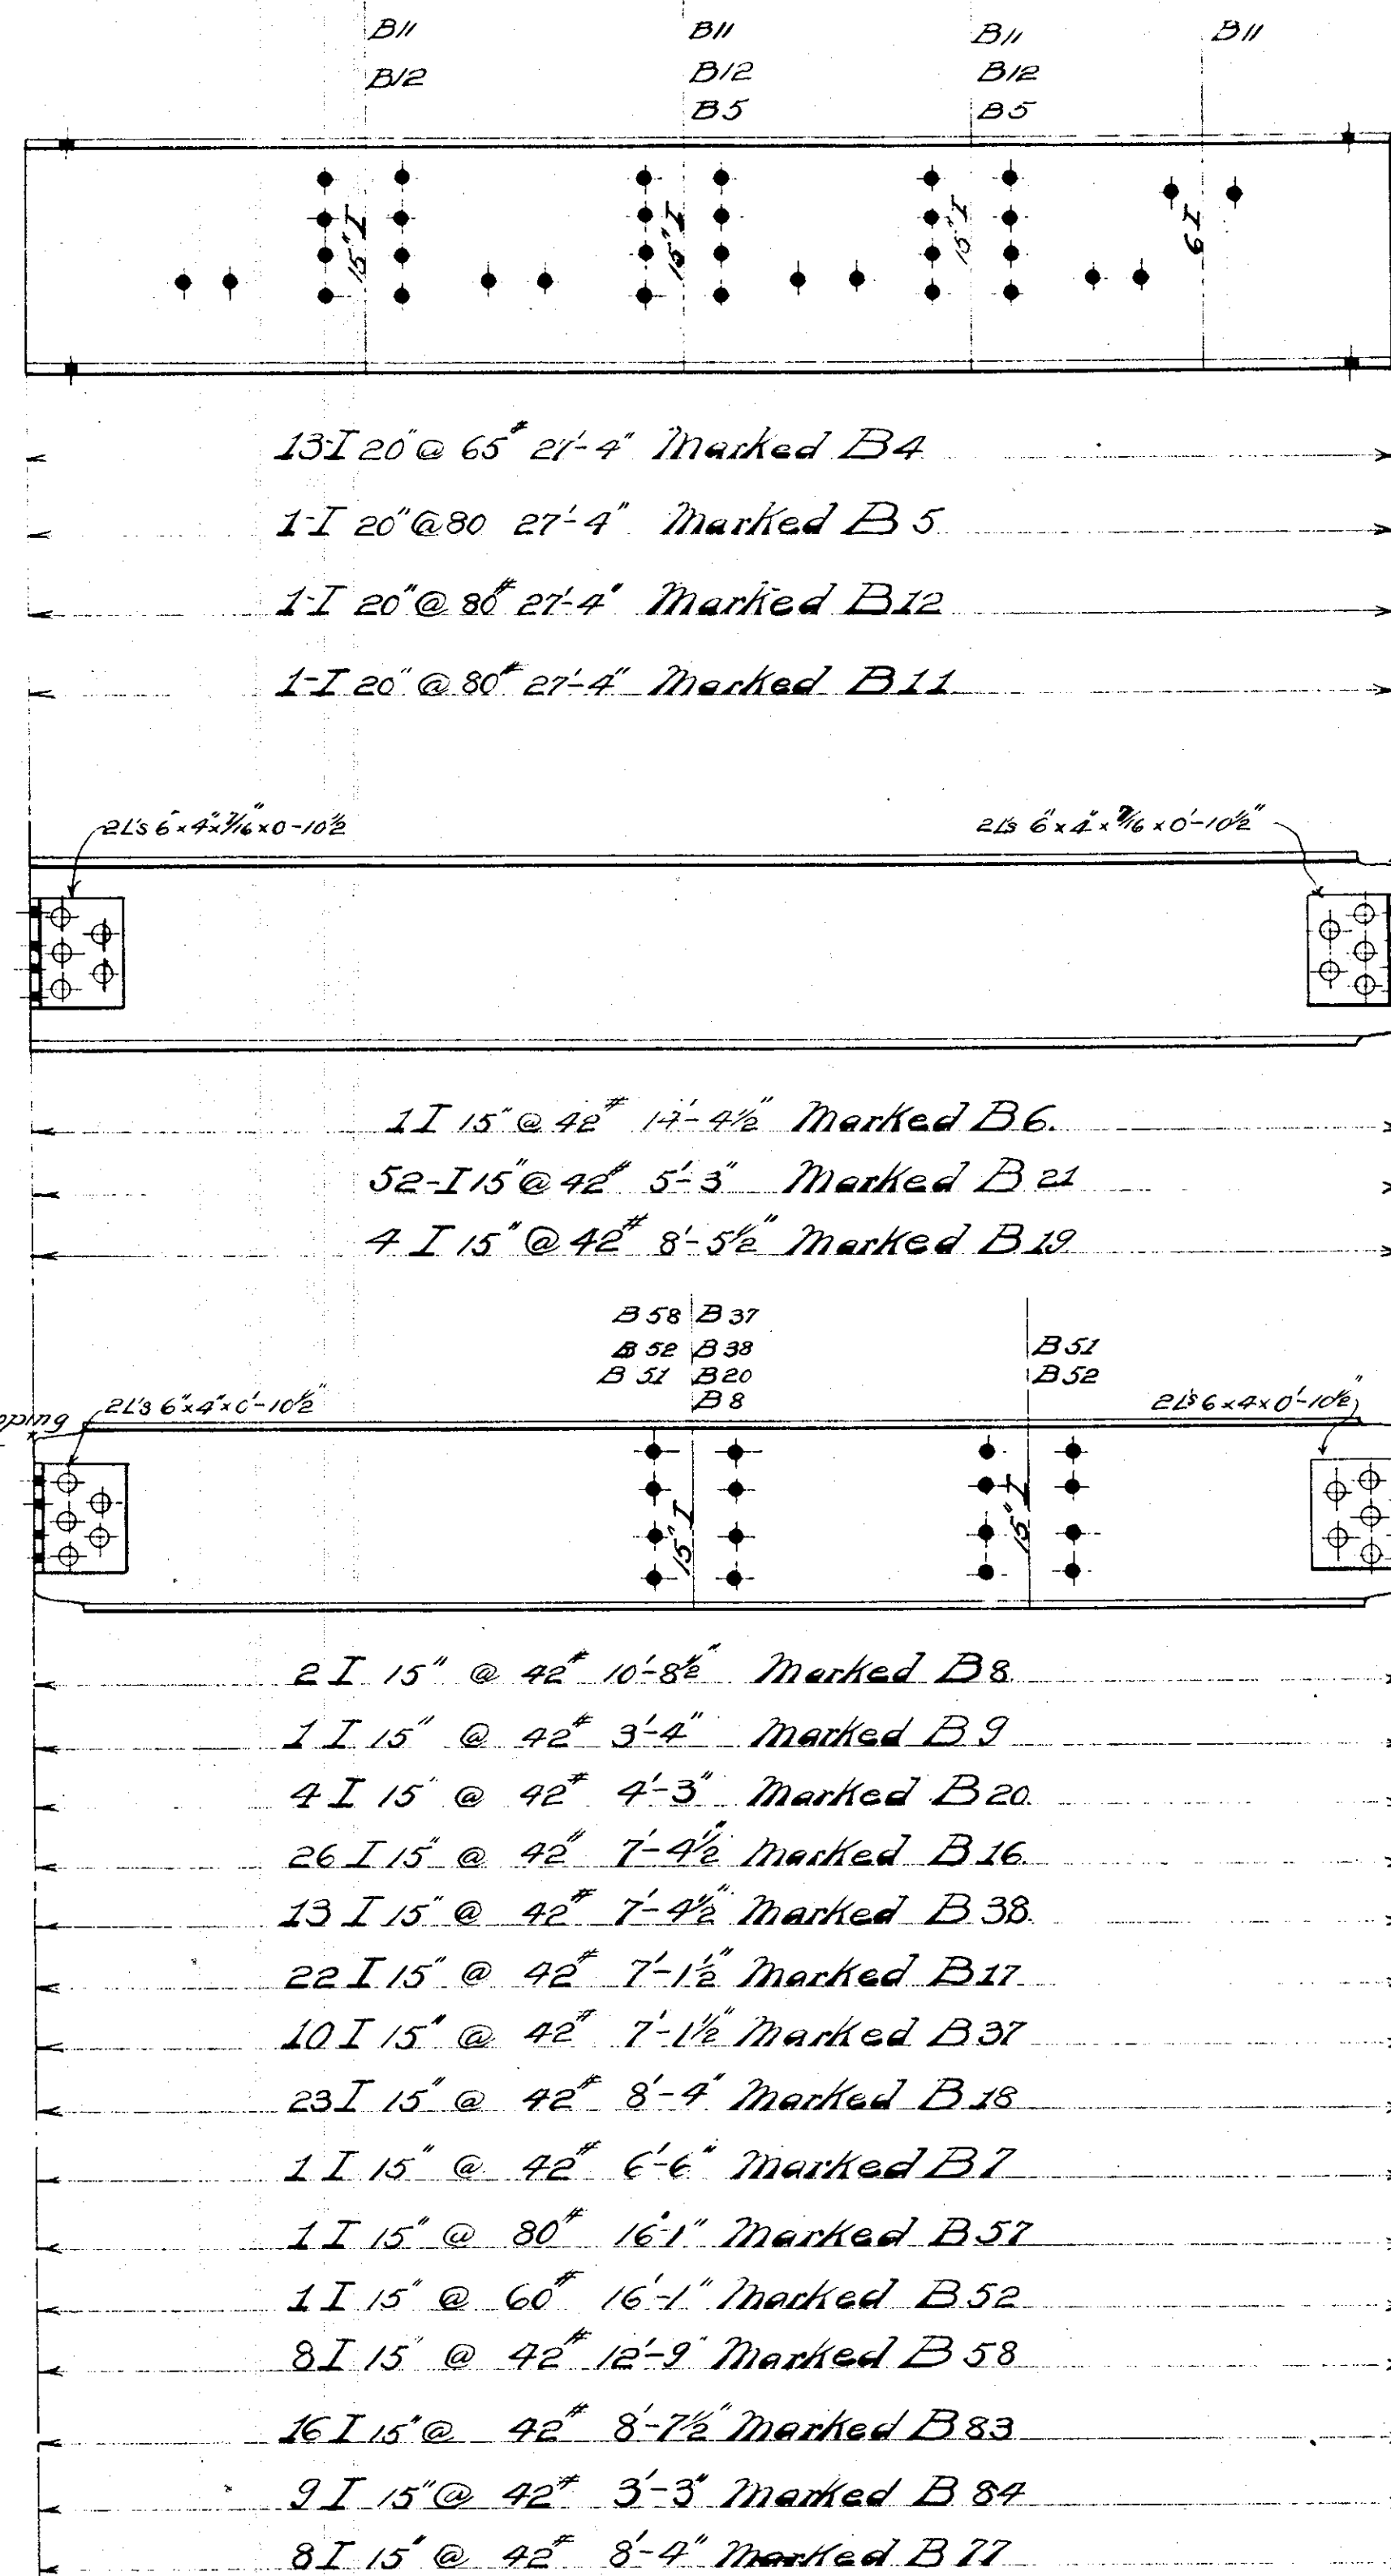 B11 B11 B11 B11
B12 B12 B12
B5 B5
15" I 15" I 15" I 6 I
13-I 20" @ 65# 27'-4" Marked B4
1-I 20" @ 80 27'-4" Marked B 5
1-I 20" @ 80# 27'-4" Marked B12
1-I 20" @ 80# 27'-4" Marked B11
2L's 6"×4"×7/16"×0-10½ 2L's 6"×4"×7/16×0'-10½"
1 I 15" @ 42# 14'-4½" Marked B6.
52-I 15" @ 42# 5'-3" Marked B 21
4 I 15" @ 42# 8'-5½" Marked B 19
B 58 B 37
B 52 B 38 B 51
B 51 B 20 B 52
B 8
2L's 6"×4"×0'-10½" 2L's 6×4×0'-10½"
15" I 15" I
2 I 15" @ 42# 10'-8½" Marked B8
1 I 15" @ 42# 3'-4" Marked B 9
4 I 15" @ 42# 4'-3" Marked B 20
26 I 15" @ 42" 7'-4½" Marked B 16
13 I 15" @ 42# 7'-4½" Marked B 38
22 I 15" @ 42# 7'-1½" Marked B17
10 I 15" @ 42# 7'-1½" Marked B 37
23 I 15" @ 42# 8'-4" Marked B 18
1 I 15" @ 42# 6'-6" Marked B7
1 I 15" @ 80# 16'-1" Marked B57
1 I 15" @ 60# 16'-1" Marked B 52
8 I 15" @ 42# 12'-9" Marked B 58
16 I 15" @ 42# 8'-7½" Marked B 83
9 I 15" @ 42# 3'-3" Marked B 84
8 I 15" @ 42# 8'-4" Marked B 77